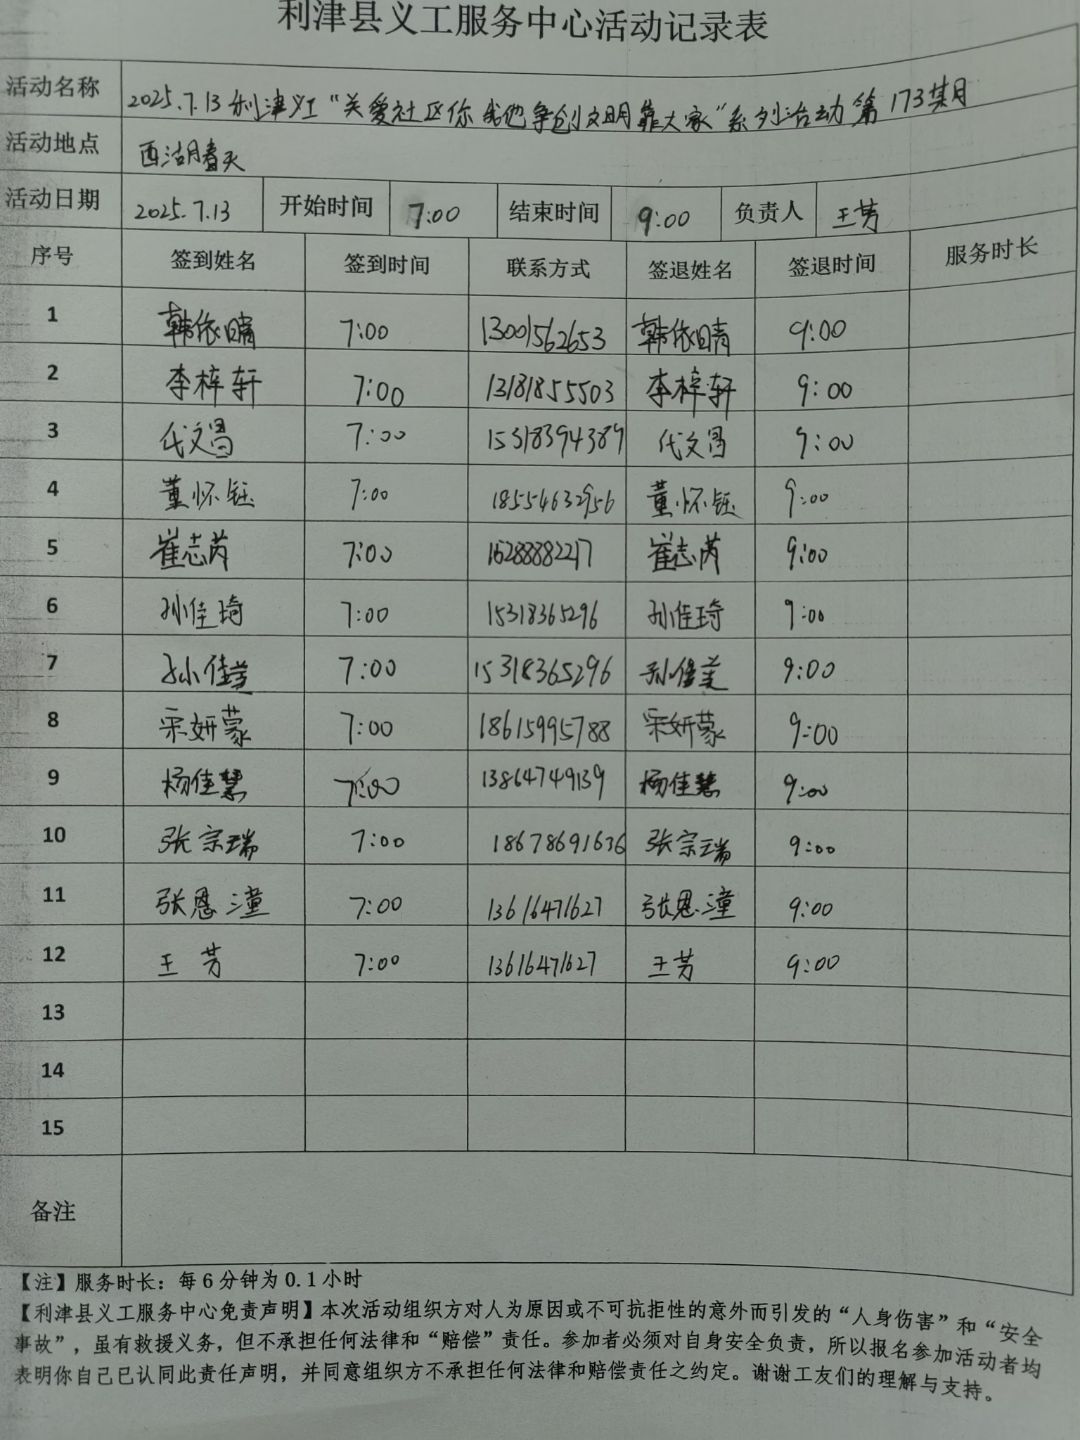 利津县义工服务中心活动记录表
活动名称 2025.7.13利津义工“关爱社区你我他争创文明靠大家”系列活动第173期
活动地点 西湖春天
活动日期 2025.7.13 开始时间 7:00 结束时间 9:00 负责人 王芳
序号 签到姓名 签到时间 联系方式 签退姓名 签退时间 服务时长
1 韩依晴 7:00 13001562653 韩依晴 9:00
2 李梓轩 7:00 13181855503 李梓轩 9:00
3 代文昌 7:00 15318394389 代文昌 9:00
4 董怀钰 7:00 18554632956 董怀钰 9:00
5 崔志芮 7:00 16288882217 崔志芮 9:00
6 孙佳琦 7:00 15318365296 孙佳琦 9:00
7 孙佳莹 7:00 15318365296 孙佳莹 9:00
8 宋妍蒙 7:00 18615995788 宋妍蒙 9:00
9 杨佳慧 7:00 13864749139 杨佳慧 9:00
10 张宗瑞 7:00 18678691636 张宗瑞 9:00
11 张恩潼 7:00 13616471627 张恩潼 9:00
12 王芳 7:00 13616471627 王芳 9:00
13
14
15
备注
【注】服务时长：每6分钟为0.1小时
【利津县义工服务中心免责声明】本次活动组织方对人为原因或不可抗拒性的意外而引发的“人身伤害”和“安全
事故”，虽有救援义务，但不承担任何法律和“赔偿”责任。参加者必须对自身安全负责，所以报名参加活动者均
表明你自己已认同此责任声明，并同意组织方不承担任何法律和赔偿责任之约定。谢谢工友们的理解与支持。